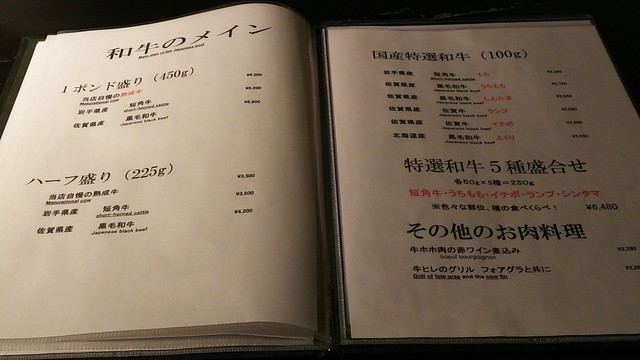 和牛のメイン
Main dish of the Japanese beef
1ポンド盛り (450g)
当店自慢の熟成牛
Maturational cow
岩手県産 短角牛
short-horned cattle
佐賀県産 黒毛和牛
Japanese black beef
¥6,200
ハーフ盛り (225g)
当店自慢の熟成牛 ¥3,500
Maturational cow
岩手県産 短角牛 ¥3,500
short-horned cattle
佐賀県産 黒毛和牛 ¥4,200
Japanese black beef
国産特選和牛 (100g)
岩手県産 短角牛 もも
short-horned cattle
佐賀県産 黒毛和牛 うちもも
Japanese black beef
佐賀県産 黒毛和牛 しんたま
Japanese black beef
佐賀県産 佐賀牛 ランプ
Japanese black beef
佐賀県産 黒毛和牛 イチボ
Japanese black beef
北海道産 黒毛和牛
Japanese black beef
特選和牛5種盛合せ
各50g×5種=250g
短角牛・うちもも・イチボ・ランプ・シンタマ
※色々な部位、種の食べくらべ! ¥6,480
その他のお肉料理
牛ホホ肉の赤ワイン煮込み
boeuf bourguignon
牛ヒレのグリル フォアグラと共に
Grill of foie gras and the cow fin